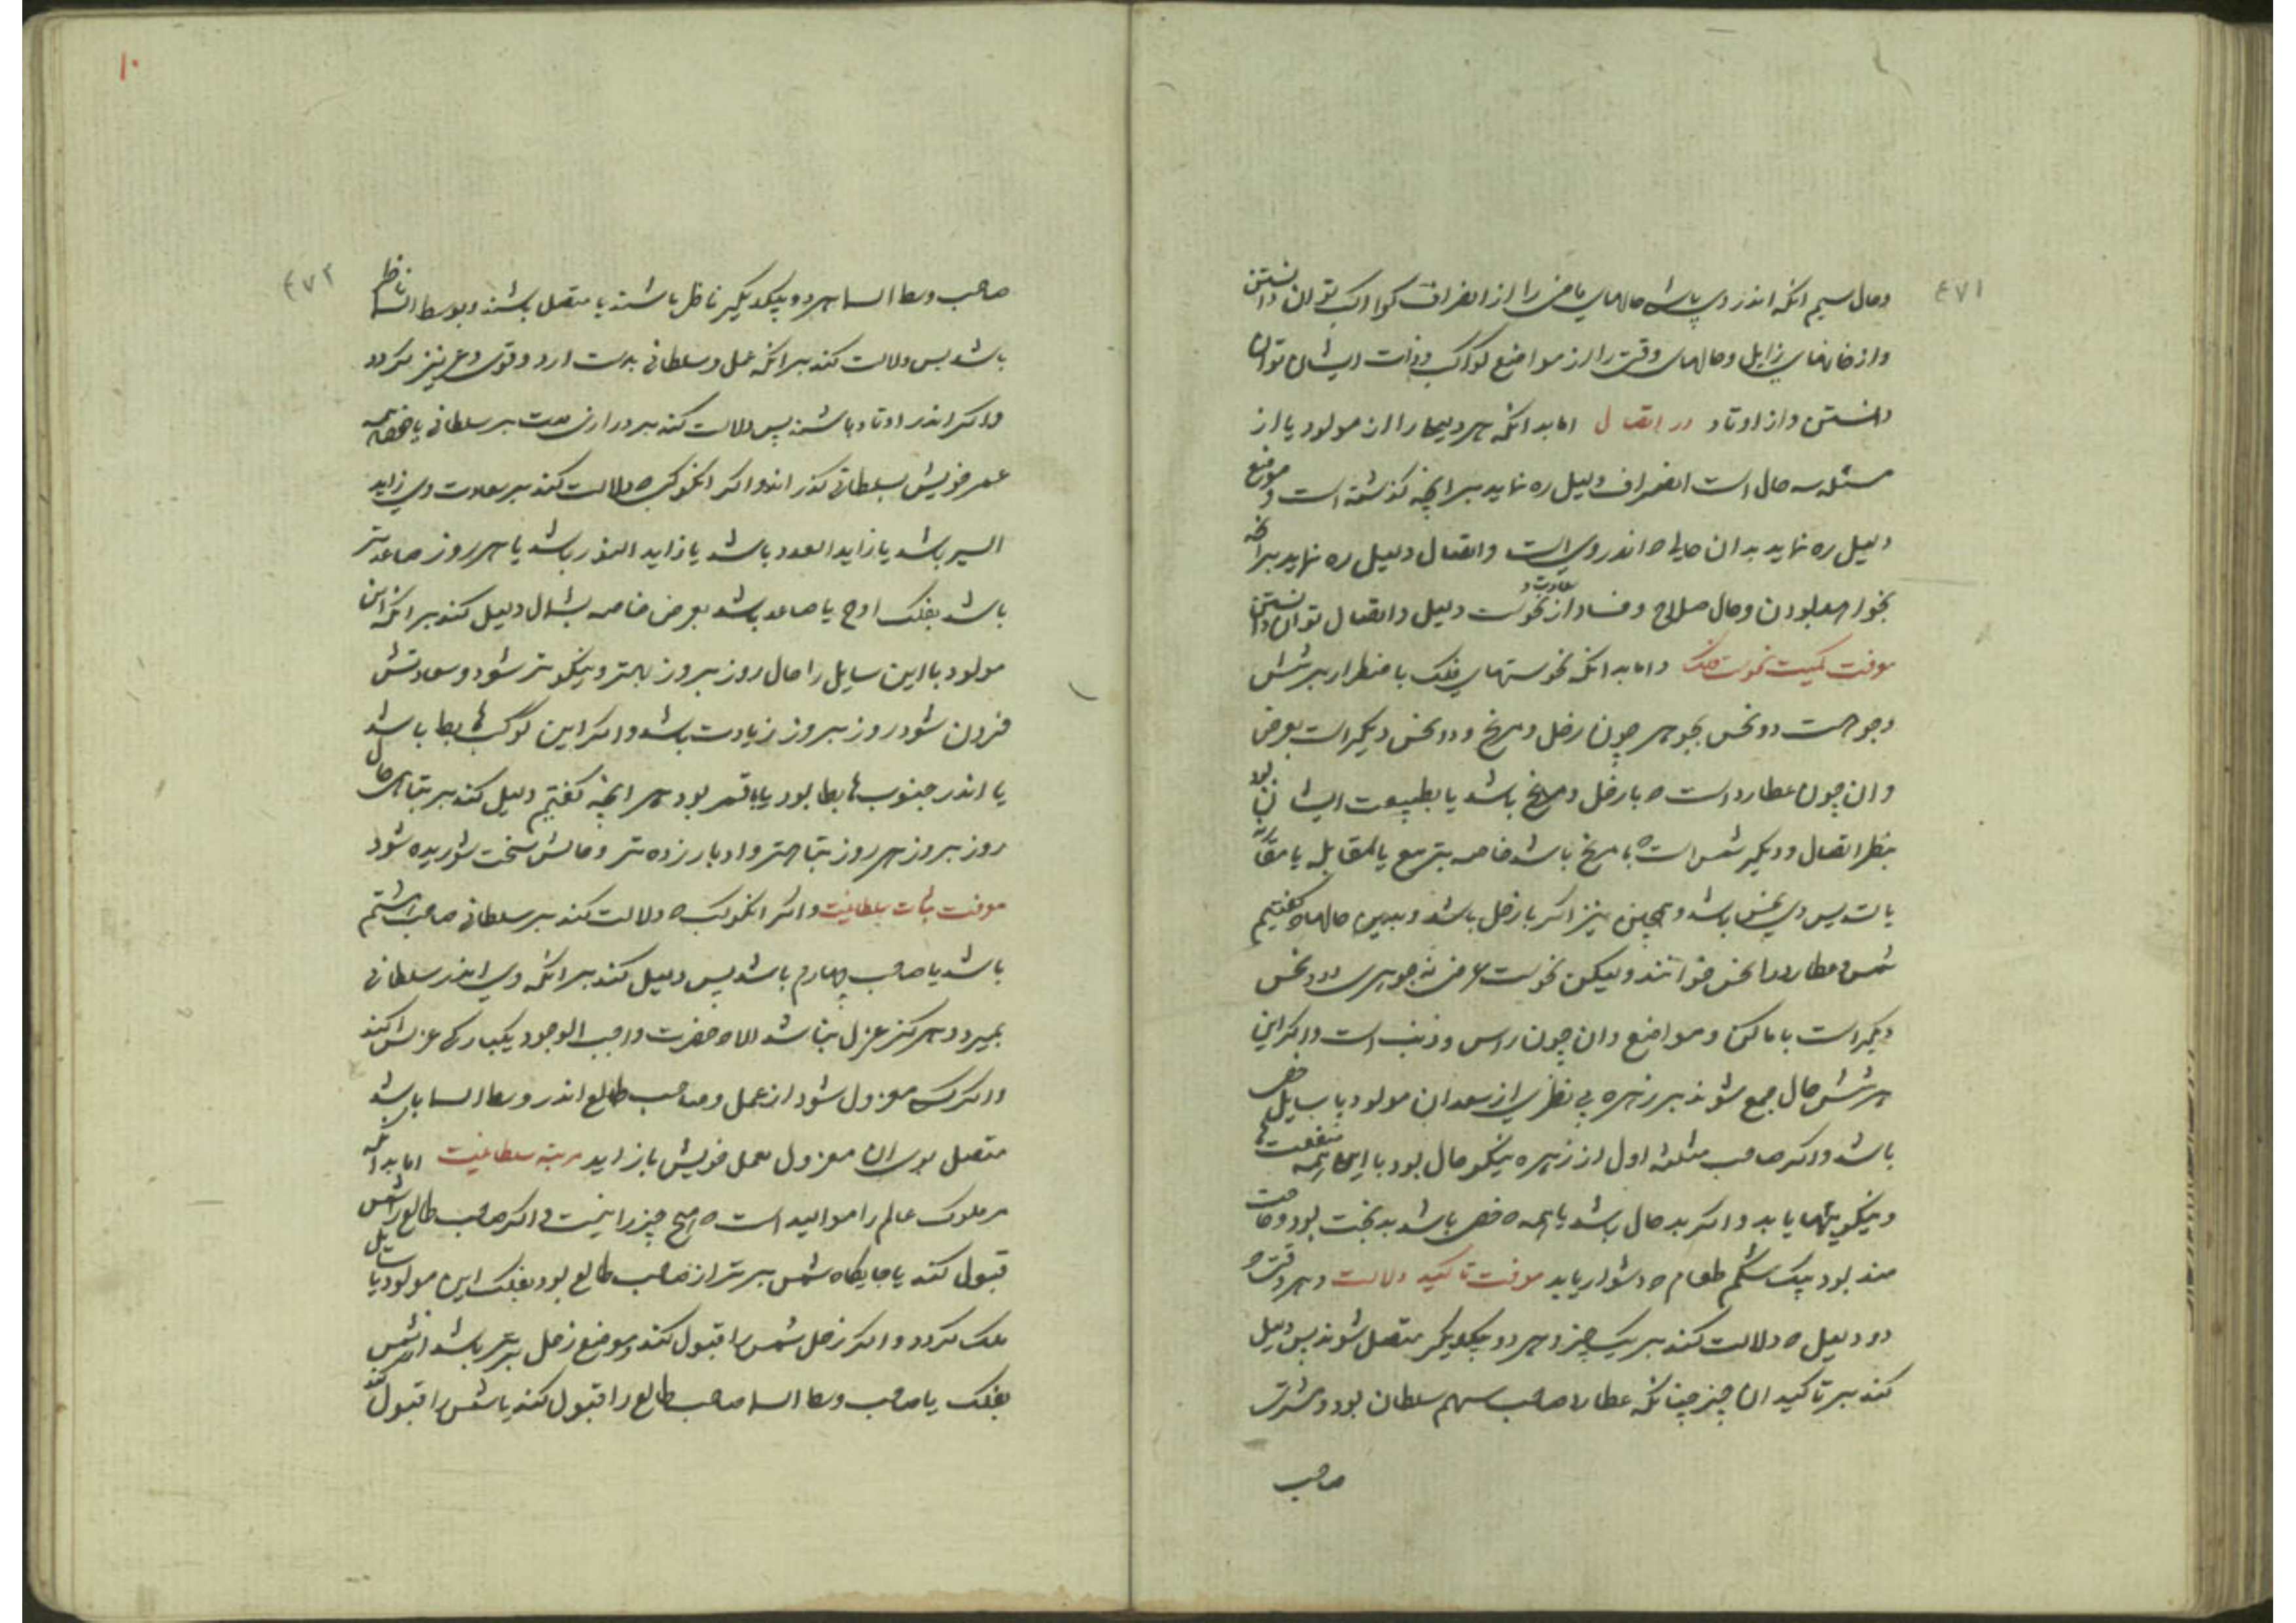 ۴۷۱
وحال سیم انکه اندر وی باشد حالهای ماضی را از انصراف کواکب توان دانستن
واز خانهای زایل وحالهای وقت را از مواضع کواکب وذات ایشان توان
دانستن واز اوتاد در اتصال اما بدانکه هر دلیل را از مولود یا از
مسئله سه حال است انصراف دلیل ره نماید بر انچه کذشته است وموضع
دلیل ره نماید بدان حالی که اندر وی است واتصال دلیل ره نماید بر انچه
بخواهد بودن وحال صلاح وفساد از سعادت و نحوست دلیل واتصال توان دانستن
معرفت کمیت نحوست فلک واما بدانکه نحوستهای فلک باضطرار بر شش
وجوهست دو نحس بجوهر چون زحل ومریخ ودو نحس دیکر است بعرض
وان چون عطارد است که با زحل ومریخ باشد یا بطبیعت ایشان بود
بنظر اتصال ودیکر شمس است که با مریخ باشد خاصه بتربیع یا مقابله یا مقارنه
باشد پس وی نحس باشد وهمچنین نیز اکر با زحل باشد وبدین حالها که کفتیم
شمس وعطارد را نحس خوانند ولیکن نحوست عرضی نه جوهری ودو نحس
دیکر است باماکن ومواضع وان چون راس وذنب است واکر این
هر شش حال جمع شوند بر زهره بی نظری از سعدان مولود یا سایل خصی
باشد واکر صاحب مثلثه اول از زهره نیکو حال بود با این همه منفعتها
ونیکوییها یابد واکر بد حال باشد با همه که خصی باشد بدبخت بود وحاجت
مند بود بیک شکم طعام که دشوار یابد معرفت تاکید دلالت وهر وقت که
دو دلیل که دلالت کنند بر یک چیز وهر دو بیکدیکر متصل شوند پس دلیل
کند بر تاکید ان چیز چنانکه عطارد صاحب سهم سلطان بود ومشتری
صاحب
۱۰
۴۷۲
صاحب وسط السما هر دو بیکدیکر ناظر باشند یا متصل باشند وبوسط السما ناظر
باشد پس دلالت کند بر انکه عمل وسلطانی بدست ارد وقوی وعزیز کردد
واکر اندر اوتاد باشند پس دلالت کند بر درازی مدت بر سلطانی یا خود همه
عمر خویش بسلطانی کذراند واکر ان کوکب که دلالت کند بر سعادت وی زاید
السیر باشد یا زاید العدد باشد یا زاید النور باشد یا هر روز صاعدتر
باشد بفلک اوج یا صاعد باشد بعرض خاصه بشمال دلیل کند بر انکه این
مولود یا این سایل را حال روز بروز بهتر ونیکوتر شود وسعادتش
فزون شود روز بروز زیادت باشد واکر این کوکب هابط باشد
یا اندر جنوب هابط بود یا ناقص بود هر انچه کفتیم دلیل کند بر تباهی حال
روز بروز هر روز تباهتر وادبار زده تر وحالش سخت شوریده شود
معرفت ثبات سلطانیت واکر ان کوکب که دلالت کند بر سلطانی صاحب هشتم
باشد یا صاحب چهارم باشد پس دلیل کند بر انکه وی اندر سلطانی
بمیرد وهرکز عزل نباشد الا که حضرت واجب الوجود یکبارکی عزلش کند
واکر کسی معزول شود از عمل وصاحب طالع اندر وسط السما باشد
متصل بوی ان معزول بعمل خویش باز اید مرتبه سلطانیت اما بدانکه
مر ملوک عالم را موالید است که هیچ چیز را نیست و اکر صاحب طالع را شمس
قبول کند یا جایکاه شمس برتر از صاحب طالع بود بفلک این مولود یا سایل
ملک کردد واکر زحل شمس را قبول کند وموضع زحل برتر باشد از شمس
بفلک یا صاحب وسط السما صاحب طالع را قبول کند یا شمس را قبول کند